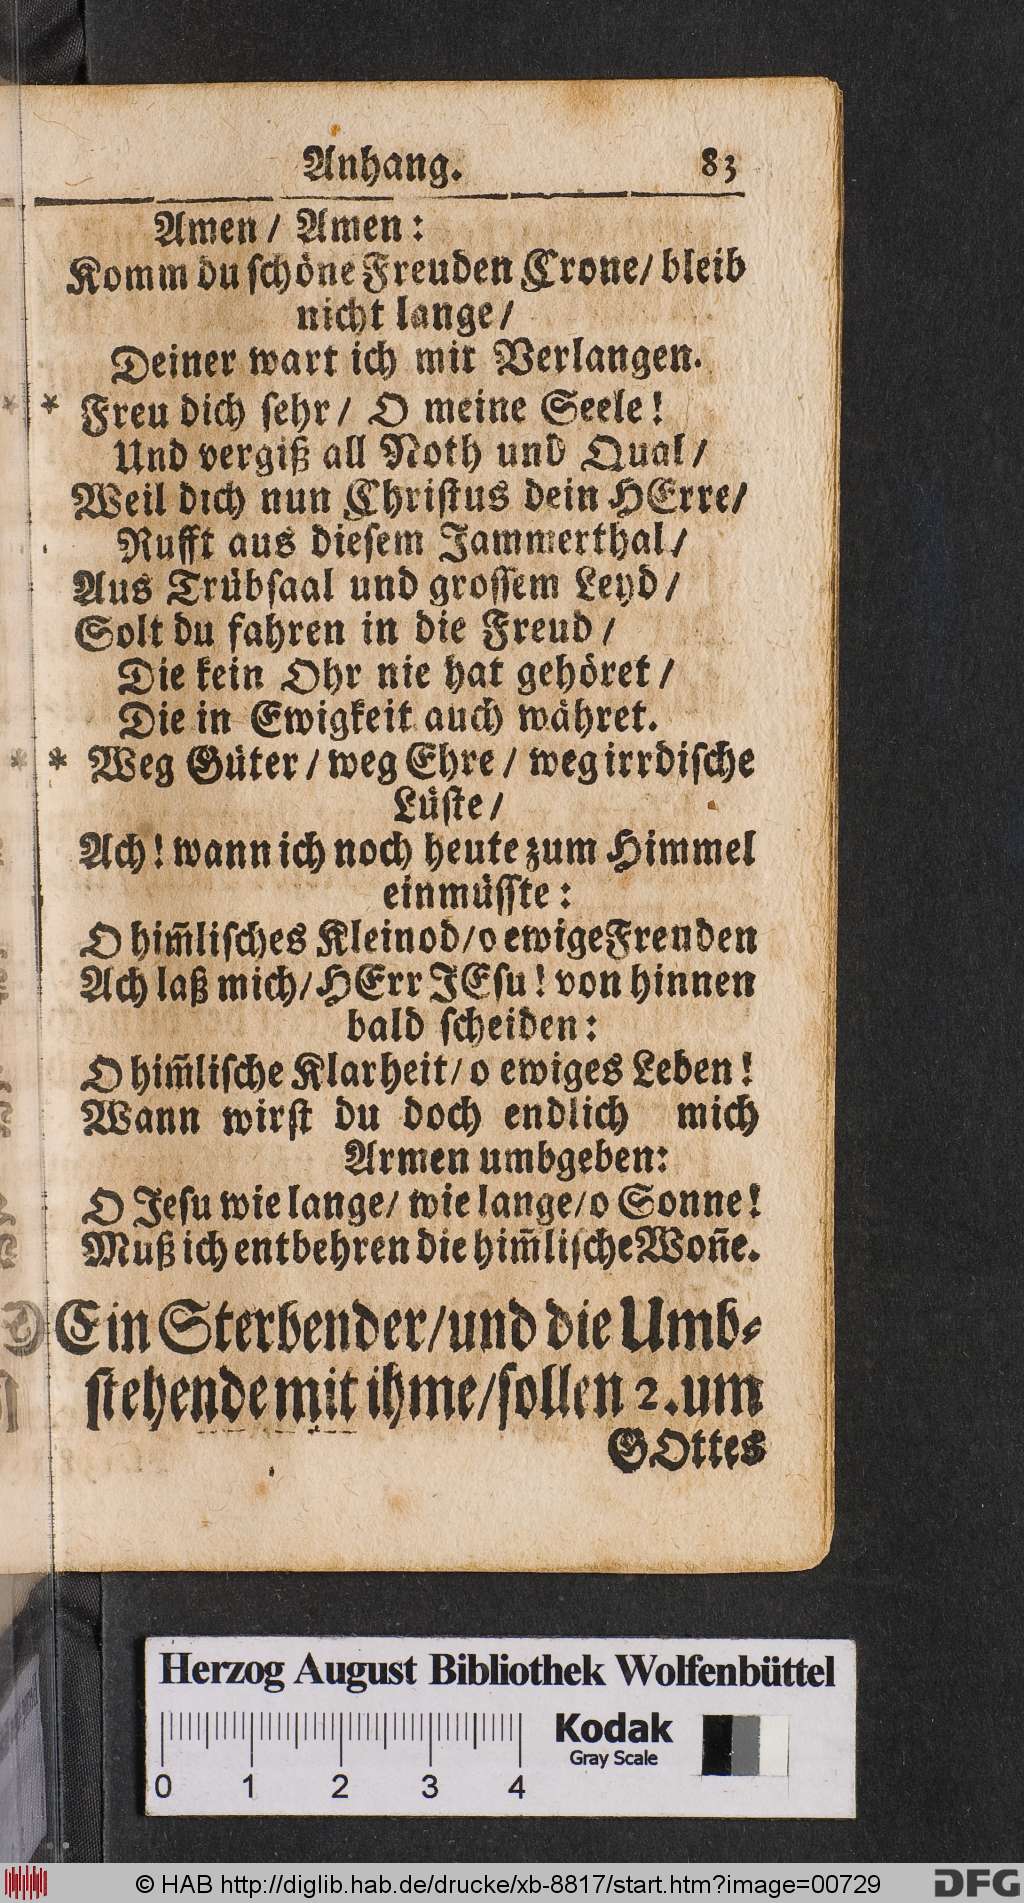 Anhang. 83
Amen / Amen:
Komm du schöne Freuden Crone/ bleib
nicht lange/
Deiner wart ich mit Verlangen.
* Freu dich sehr/ O meine Seele!
Und vergiß all Noth und Qual/
Weil dich nun Christus dein HErre/
Rufft aus diesem Jammerthal/
Aus Trübsaal und grossem Leyd/
Solt du fahren in die Freud/
Die kein Ohr nie hat gehöret/
Die in Ewigkeit auch währet.
* Weg Güter/ weg Ehre/ weg irrdische
Lüste/
Ach! wann ich noch heute zum Himmel
einmüsste:
O him̄lisches Kleinod/o ewige Frenden
Ach laß mich/HErr JEsu! von hinnen
bald scheiden:
O him̄lische Klarheit/o ewiges Leben!
Wann wirst du doch endlich mich
Armen umbgeben:
O Jesu wie lange/ wie lange/o Sonne!
Muß ich entbehren die him̄lische Won̄e.
Ein Sterbender/und die Umb-
stehende mit ihme/sollen 2.um
GOttes
Herzog August Bibliothek Wolfenbüttel
Kodak
Gray Scale
0 1 2 3 4
© HAB http://diglib.hab.de/drucke/xb-8817/start.htm?image=00729
DFG